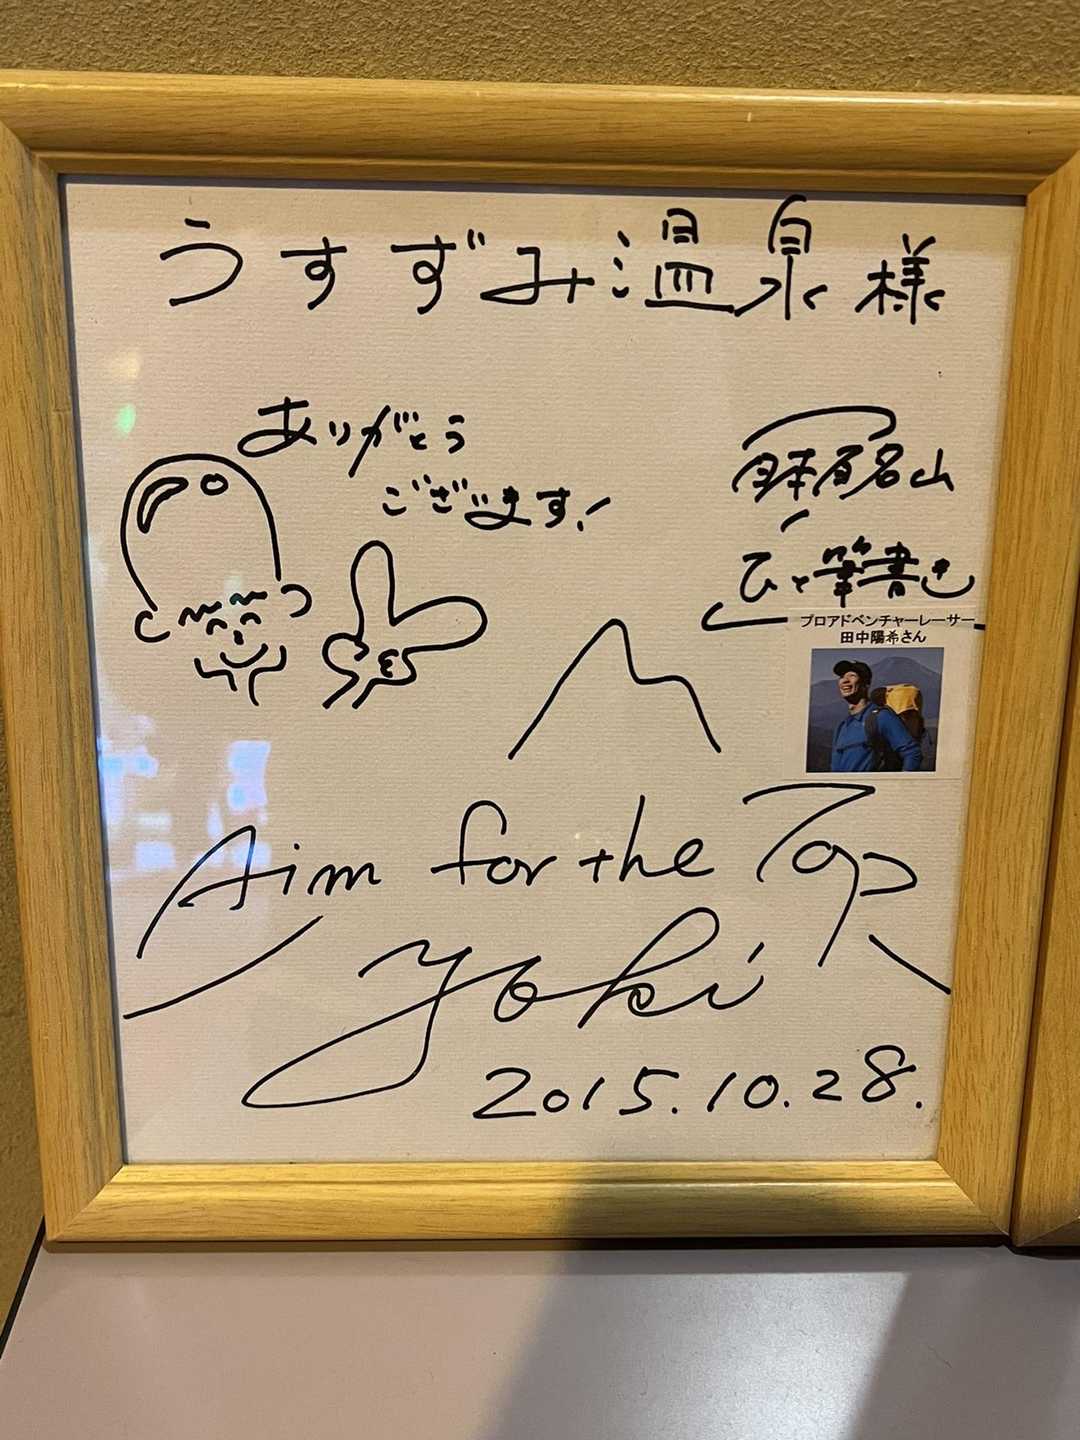 うすずみ温泉様
ありがとう
ございます!
日本百名山
ひと筆書き
プロアドベンチャーレーサー
田中陽希さん
Aim for the Top
Yoki
2015.10.28.